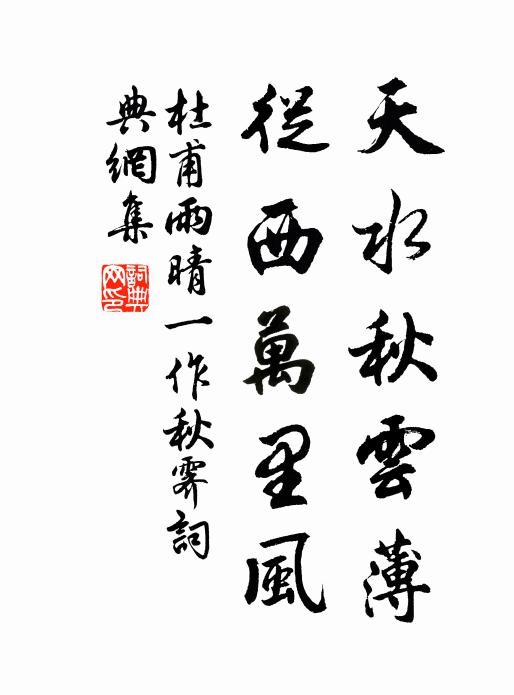 天水秋雲薄
從西萬里風
杜甫雨晴一作秋霽詞
典網集
詞典
网印